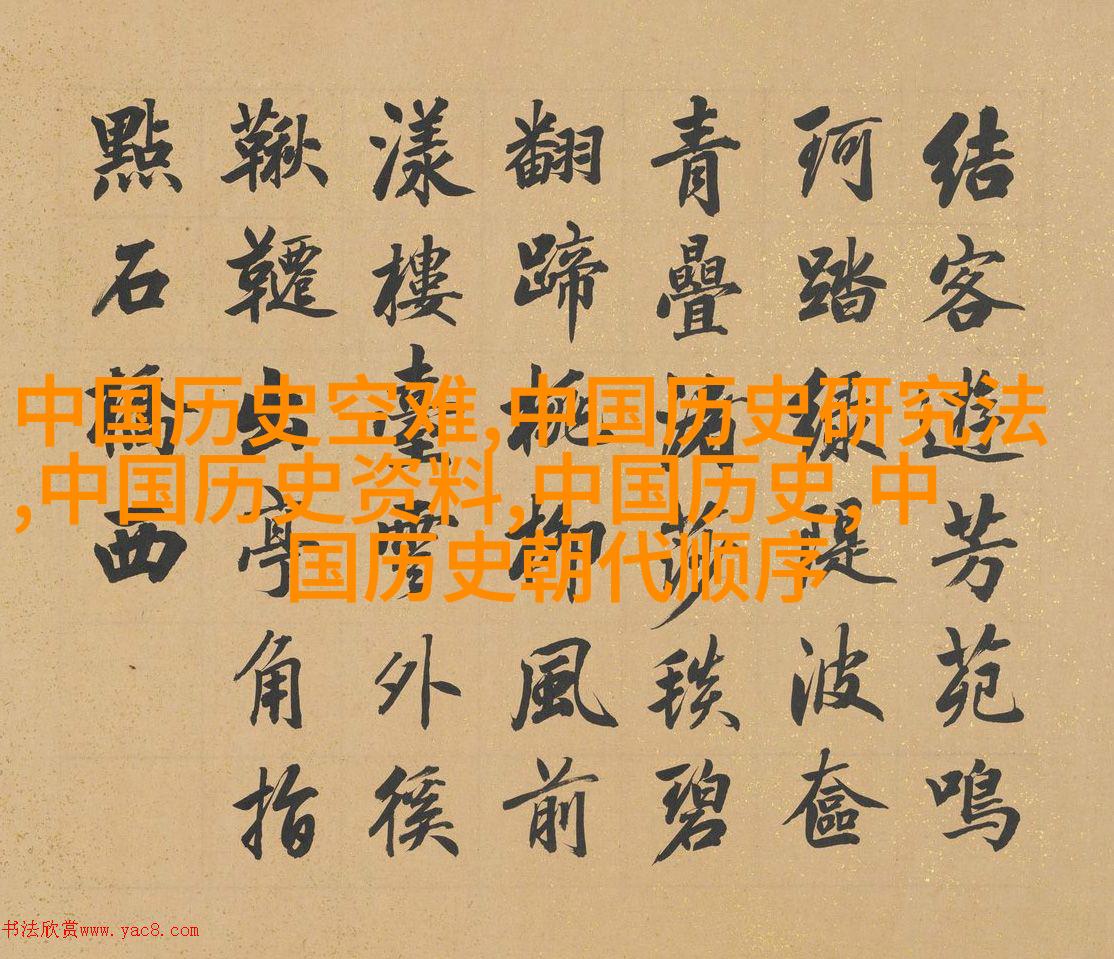 結客遊芳苑鳴
珂踏綠堤波奩
青疊莎毯碧
翻蹄桃柳風前
漾樓臺外徯
鞦韆出亭角指
點石橋西
中国历史空难,中国历史研究法
,中国历史资料,中国历史,中
国历史朝代顺序
书法欣赏www.yac8.com